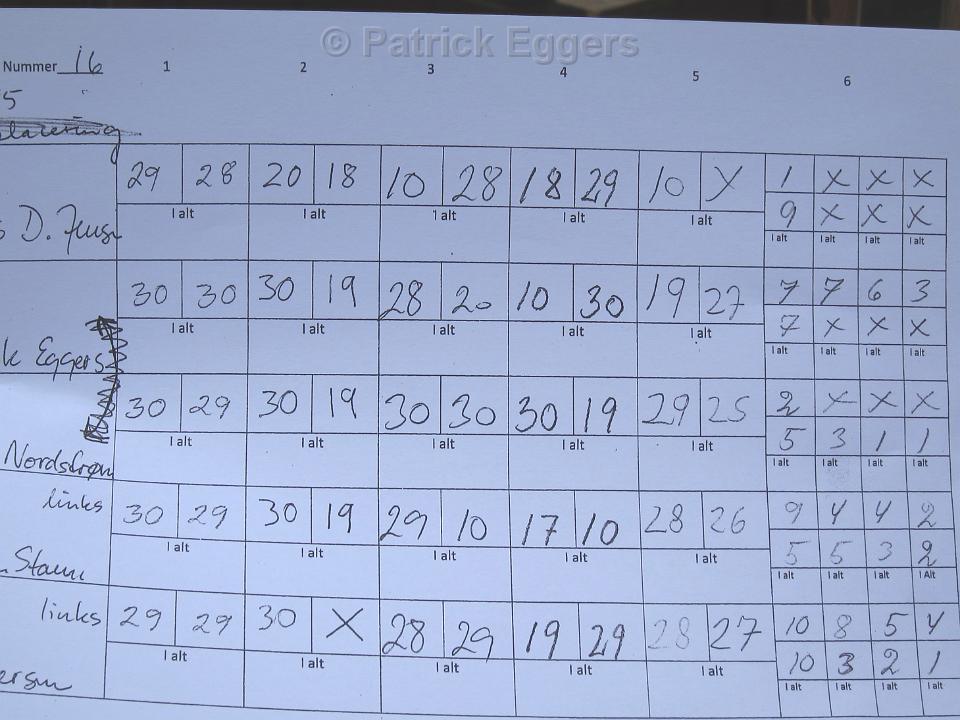 © Patrick Eggers
Nummer 16 1 2 3 4 5 6
5
29 28 20 18 10 28 18 29 10 X 1 X X X
9 X X X
I alt I alt I alt I alt I alt I alt I alt I alt I alt
D. Jensen
30 30 30 19 28 20 10 30 19 27 7 7 6 3
7 X X X
I alt I alt I alt I alt I alt I alt I alt I alt I alt
k Eggers
30 29 30 19 30 30 30 19 29 25 2 X X X
5 3 1 1
I alt I alt I alt I alt I alt I alt I alt I alt I alt
Nordstrøm
links 30 29 30 19 29 10 17 10 28 26 9 4 4 2
5 5 3 2
I alt I alt I alt I alt I alt I alt I alt I alt I Alt
links 29 29 30 X 28 29 19 29 28 27 10 8 5 4
10 3 2 1
I alt I alt I alt I alt I alt I alt I alt I alt I alt